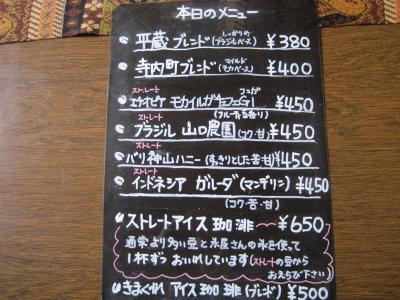 本日のメニュー
平蔵ブレンド(しっかりめ ブラジルベース) ¥380
寺内町ブレンド(マイルド モカベース) ¥400
ストレート コンガ
エチオピア モカイルガチェフェG1 ¥450
(フルーティな香り)
ストレート
ブラジル 山口農園(コク・甘)¥450
ストレート
バリ神山ハニー(すっきりとした苦・甘)¥450
ストレート
インドネシア ガルーダ(マンデリン)¥450
(コク・苦・甘)
ストレートアイス 珈琲 ¥650
通常より多い豆と氷屋さんの氷を使って
1杯ずつ おいれしています(ストレートの豆から
おえらび下さい)
きまぐれ アイス 珈琲(ブレンド) ¥500